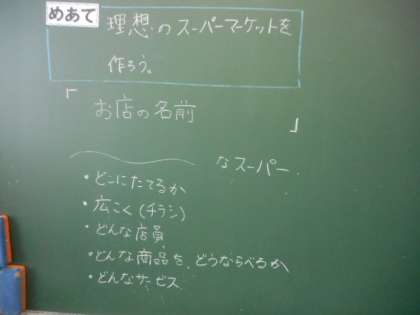 めあて
理想のスーパーマーケットを
作ろう。
「お店の名前」
なスーパー.
・どこにたてるか
・広こく(チラシ)
・どんな店員
・どんな商品を、どうならべるか
・どんなサービス